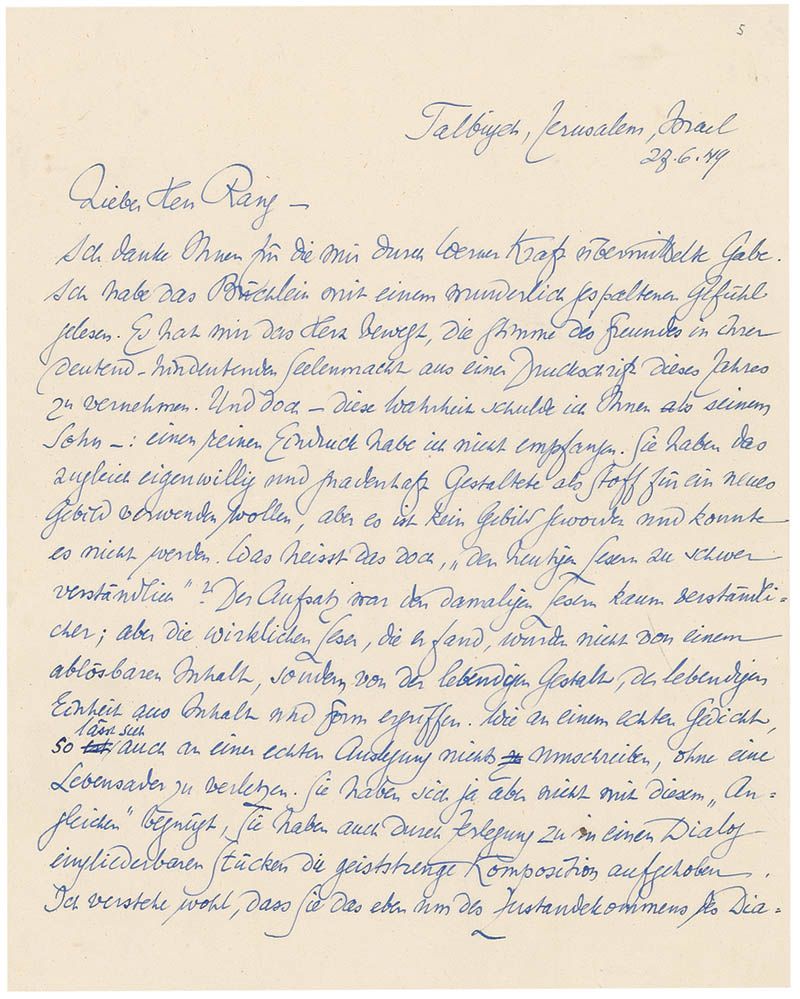 5
Talbiyeh, Jerusalem, Israel
28.6.49
Lieber Herr Rang —
Ich danke Ihnen für die mir durch Werner Kraft übermittelte Gabe.
Ich habe das Büchlein mit einem wunderlich gespaltenen Gefühl
gelesen. Es hat mir das Herz bewegt, die Stimme des Freundes in ihrer
deutend-hindeutenden Seelenmacht aus einer Druckschrift dieses Jahres
zu vernehmen. Und doch – diese Wahrheit schulde ich Ihnen als seinem
Sohn –: einen reinen Eindruck habe ich nicht empfangen. Sie haben das
zugleich eigenwillig und gnadenhaft Gestaltete als Stoff für ein neues
Gebild verwenden wollen, aber es ist kein Gebild geworden und konnte
es nicht werden. Was heisst das doch, „den heutigen Lesern zu schwer
verständlich"? Der Aufsatz war den damaligen Lesern kaum verständli-
cher; aber die wirklichen Leser, die er fand, wurden nicht von einem
ablösbaren Inhalt, sondern von der lebendigen Gestalt, der lebendigen
Einheit aus Inhalt und Form ergriffen. Wie an einem echten Gedicht,
so lässt sich auch an einer echten Auslegung nichts umschreiben, ohne eine
Lebensader zu verletzen. Sie haben sich ja aber nicht mit diesem „An-
gleichen" begnügt, Sie haben auch durch Zerlegung zu in einen Dialog
eingliederbaren Stücken die geiststrenge Komposition aufgehoben.
Ich verstehe wohl, dass Sie das eben um des Zustandekommens des Dia-